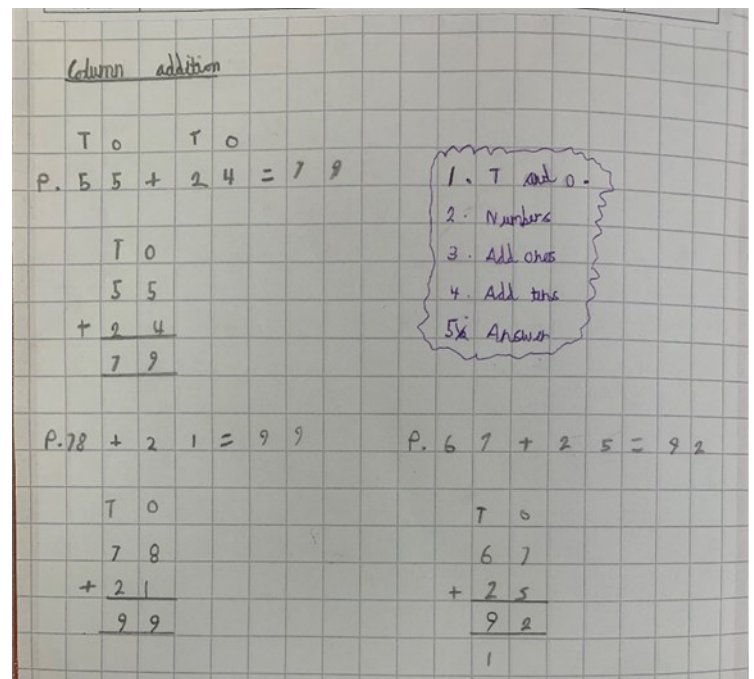 Column addition
T O T O
P. 5 5 + 2 4 = 7 9
T O
5 5
+ 2 4
7 9
1. T and O.
2. Numbers
3. Add ones
4. Add tens
5. Answer
P. 78 + 2 1 = 9 9
T O
7 8
+ 2 1
9 9
P. 6 7 + 2 5 = 9 2
T O
6 7
+ 2 5
9 2
1